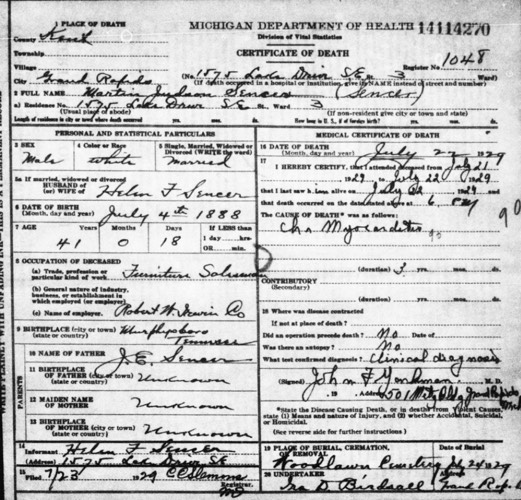 1 PLACE OF DEATH
MICHIGAN DEPARTMENT OF HEALTH 14114270
County Kent
Division of Vital Statistics
Township
CERTIFICATE OF DEATH
Village
Register No 1048
City Grand Rapids No. 1575 Lake Drive SE St. 3 Ward)
(If death occurred in a hospital or institution, give its NAME instead of street and number)
2 FULL NAME Martin Judson Sencer (Sencer)
a) Residence No. 1575 Lake Drive SE St., Ward 3
(Usual place of abode) (If non-resident give city or town and state)
Length of residence in city or town where death occurred yrs. mos. ds. How long in U. S., if of foreign birth? yrs. mos. ds.
PERSONAL AND STATISTICAL PARTICULARS
MEDICAL CERTIFICATE OF DEATH
3 SEX
Male
4 Color or Race
White
5 Single, Married, Widowed or Divorced (WRITE the word)
Married
5a If married, widowed or divorced
HUSBAND of
(or) WIFE of Helen F Sencer
6 DATE OF BIRTH
(Month, day and year) July 4th 1888
7 AGE
41 0 18
If LESS than
1 day hrs.
OR min.
8 OCCUPATION OF DECEASED
(a) Trade, profession or particular kind of work Furniture Salesman
(b) General nature of industry, business, or establishment in which employed (or employer)
(c) Name of employer Robert W. Irwin Co
9 BIRTHPLACE (city or town) Murphysboro
(state or country) Tennessee
PARENTS
10 NAME OF FATHER J.E. Sencer
11 BIRTHPLACE OF FATHER (city or town) Unknown
(state or country)
12 MAIDEN NAME OF MOTHER Unknown
13 BIRTHPLACE OF MOTHER (city or town) Unknown
(state or country)
14 Informant Helen F Sencer
(Address) 1575 Lake Drive SE
15 Filed 7/23 1929 C C Slemons
Registrar.
16 DATE OF DEATH
(Month, day and year) July 22 1929
17 I HEREBY CERTIFY, that I attended deceased from July 21
1929 to July 22, 1929
that I last saw h alive on July 22 1929 and
that death occurred on the date stated above at 6 P.M.
The CAUSE OF DEATH* was as follows:
Chr Myocarditis
90
(duration) 3 yrs. mos. ds.
CONTRIBUTORY
(Secondary)
(duration) yrs. mos. ds.
18 Where was disease contracted
If not at place of death?
Did an operation precede death? No Date of
Was there an autopsy? No
What test confirmed diagnosis? Clinical diagnosis
(Signed) John F M. D.
19 Address 501 Metz Bldg Grand Rapids
*State the Disease Causing Death, or in deaths from Violent Causes, state (1) Means and nature of Injury, and (2) whether Accidental, Suicidal, or Homicidal.
(See reverse side for further instructions)
19 PLACE OF BURIAL, CREMATION, OR REMOVAL Date of Burial
Woodlawn Cemetery July 24 1929
20 UNDERTAKER Address
Ira D Birdsall Grand Rapids